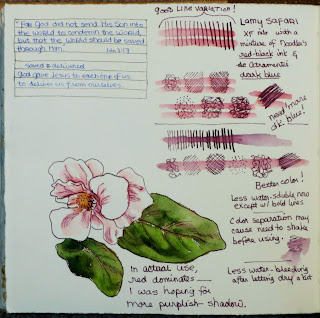 "For God did not send His Son into
the world to condemn the world,
but that the world should be saved
through Him. John 3:17
saved & delivered
God gave Jesus to each one of us
to deliver us from ourselves.
good line variation!
Lamy Safari
XF nib with a
mixture of Noodler's
red-black ink &
de Atramentis
dark blue
need more
dk. blue!
Better color!
Less water-soluble now
except w/ bold lines
Color separation may
cause need to shake
before using.
Less water-bleeding
after letting dry a bit
In actual use,
red dominates—
I was hoping for
more purplish-shadow.